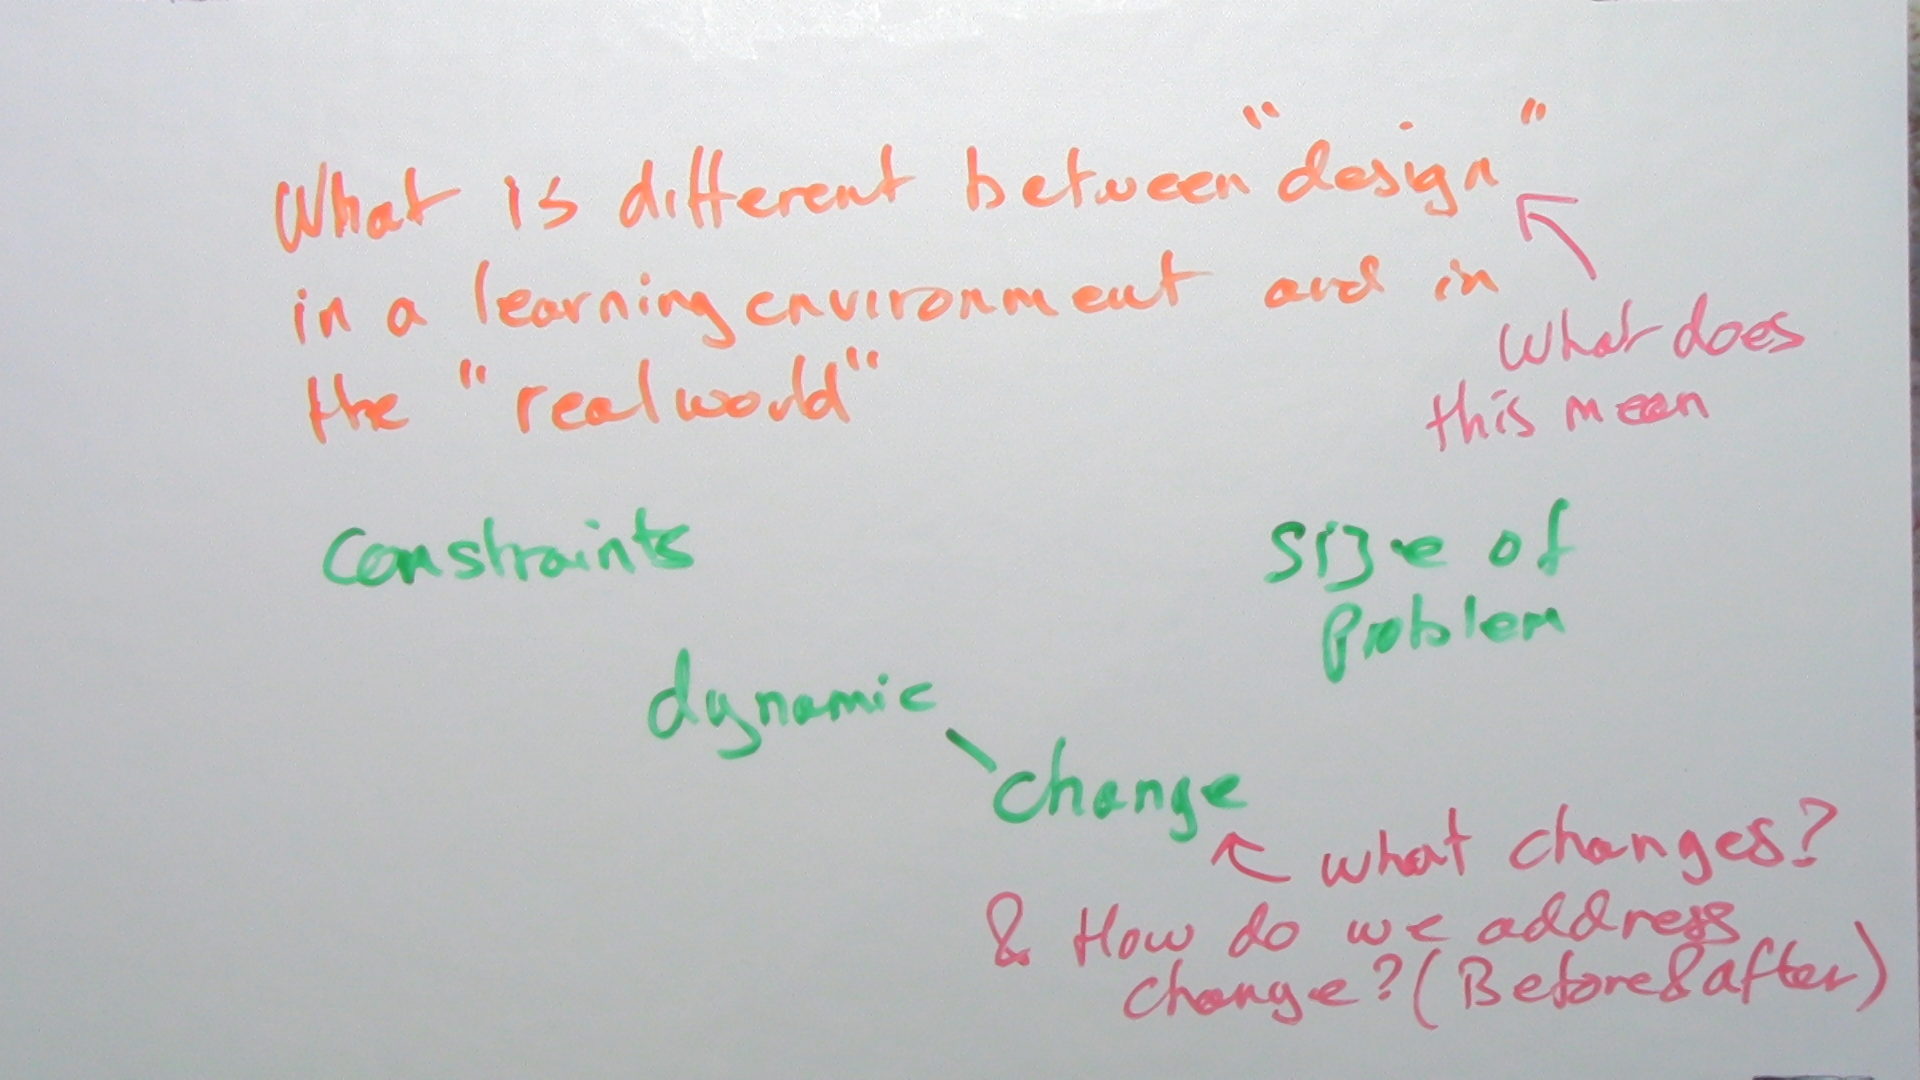 What is different between "design"
in a learning environment and in
the "real world"
What does
this mean
Constraints
Size of
Problem
dynamic
change
what changes?
& How do we address
change? (Before & after)